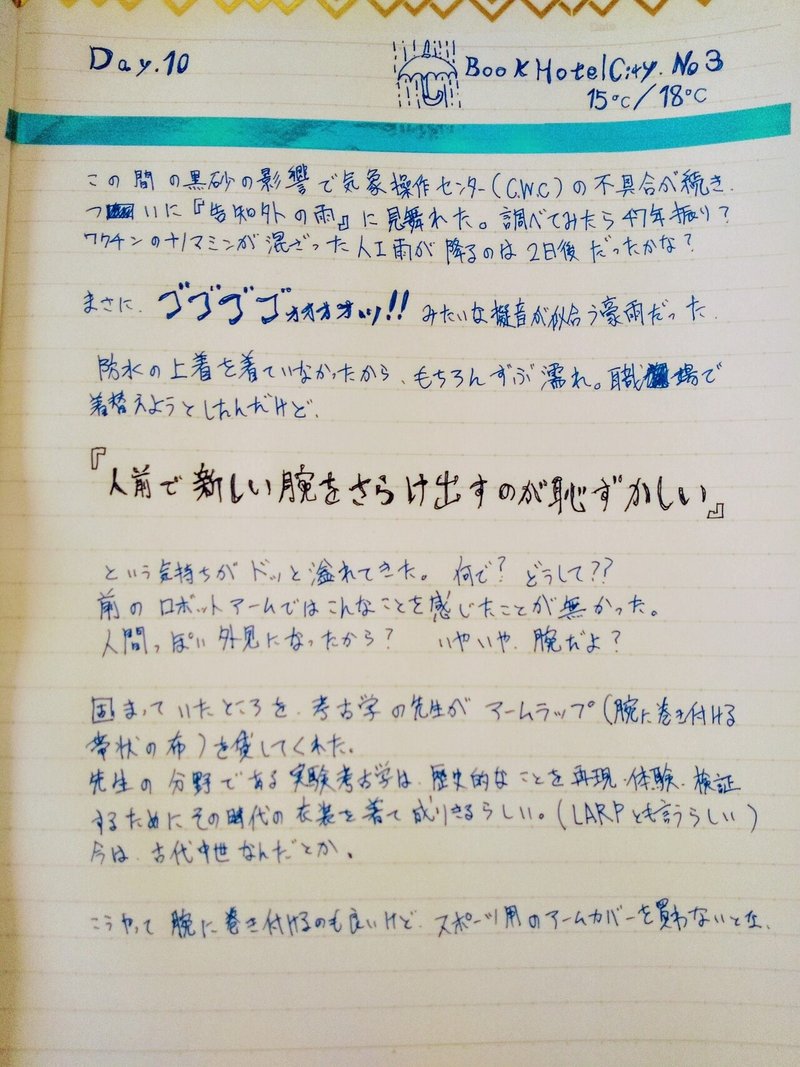 Day.10
Book Hotel City. No 3
15℃/18℃
この間の黒砂の影響で気象操作センター(C.W.C)の不具合が続き、
ついに『告知外の雨』に見舞れた。調べてみたら47年振り?
ワクチンのナノマミンが混ざった人工雨が降るのは2日後だったかな?
まさに、ゴゴゴゴォォォォッ!!みたいな擬音が似合う豪雨だった。
防水の上着を着ていなかったから、もちろんずぶ濡れ。職場で
着替えようとしたんだけど、
『人前で新しい腕をさらけ出すのが恥ずかしい』
という気持ちがドッと溢れてきた。何で?どうして??
前のロボットアームではこんなことを感じたことが無かった。
人間っぽい外見になったから? いやいや、腕だよ?
困まっていたところを、考古学の先生がアームラップ(腕に巻き付ける
帯状の布)を貸してくれた。
先生の分野である実験考古学は、歴史的なことを再現・体験・検証
するためにその時代の衣装を着て成りきるらしい。(LARPとも言うらしい)
今は、古代中世なんだとか。
こうやって腕に巻き付けるのも良いけど、スポーツ用のアームカバーを買わないとな。